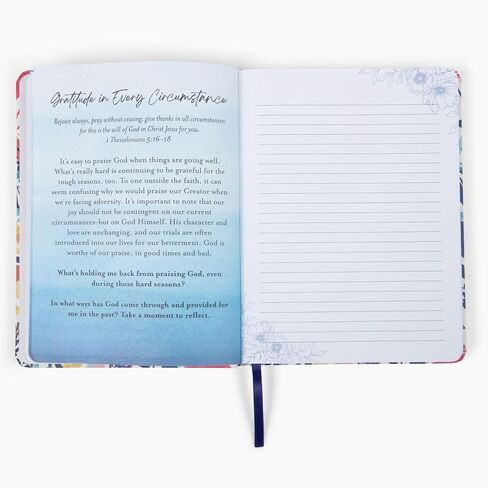 Gratitude in Every Circumstance
Rejoice always, pray without ceasing, give thanks in all circumstances;
for this is the will of God in Christ Jesus for you.
1 Thessalonians 5:16–18
It's easy to praise God when things are going well.
What's really hard is continuing to be grateful for the
tough seasons, too. To one outside the faith, it can
seem confusing why we would praise our Creator when
we're facing adversity. It's important to note that our
joy should not be contingent on our current
circumstances–but on God Himself. His character and
love are unchanging, and our trials are often
introduced into our lives for our betterment. God is
worthy of our praise, in good times and bad.
What's holding me back from praising God, even
during those hard seasons?
In what ways has God come through and provided for
me in the past? Take a moment to reflect.